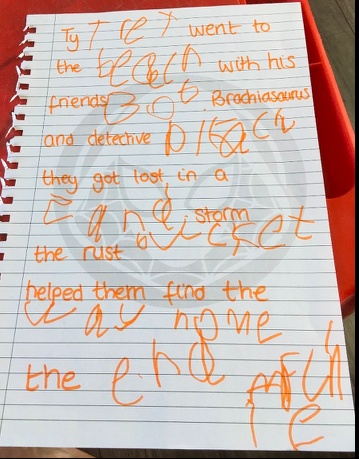 Ty T rex went to
the beach with his
friends Bob Brachiasaurus
and detective
they got lost in a
Sand storm
the rust bucket
helped them find the
way home
the end